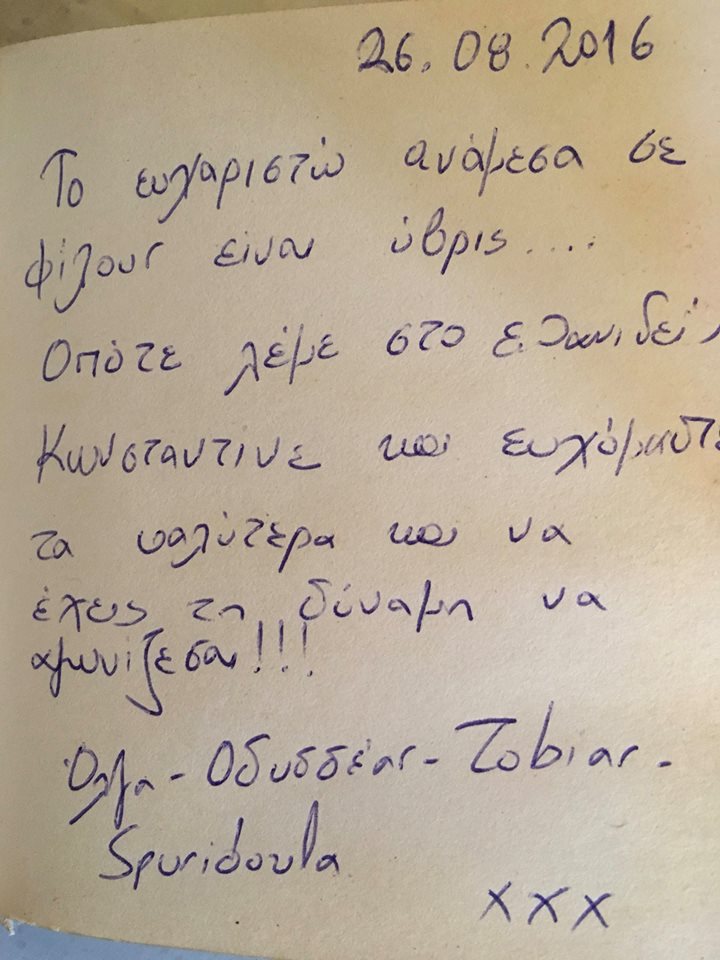 26.08.2016
Το ευχαριστώ ανάμεσα σε
φίλους είναι ύβρις....
Οπότε λέμε στο
Κωνσταντινε και ευχόμαστε
τα καλύτερα και να
έχεις τη δύναμη να
αγωνίζεσαι!!!
Όλγα - Οδυσσέας - Tobias -
Spuridoula
xxx